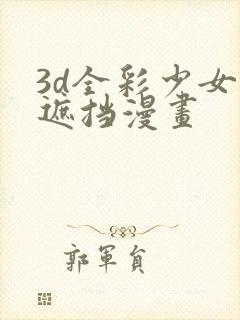 3d全彩少女
遮挡漫畫
郭軍負